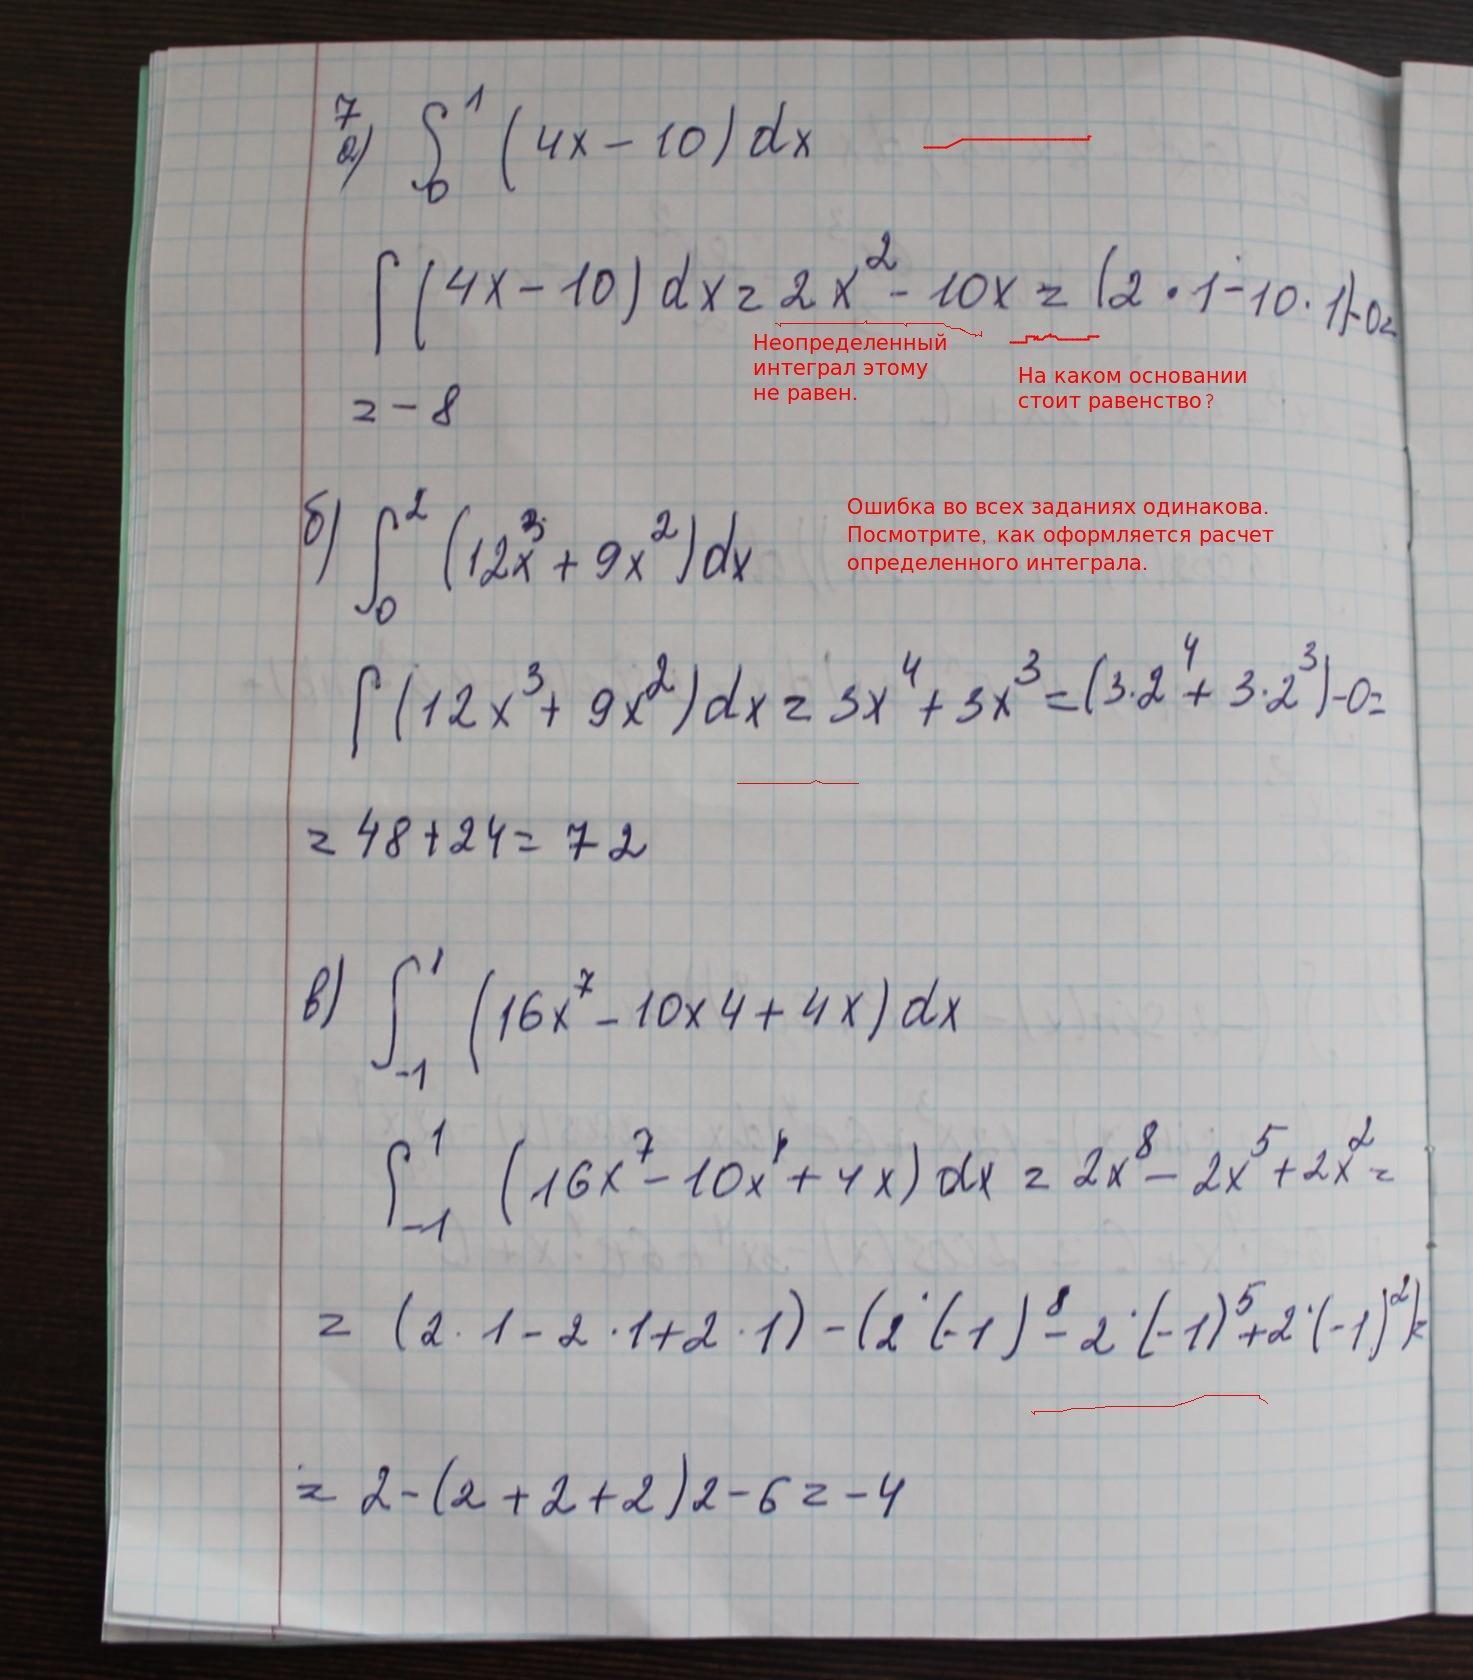 7
а) ∫₀¹ (4x - 10) dx
∫ (4x - 10) dx = 2x² - 10x = (2 · 1 - 10 · 1) - 0 =
Неопределенный
интеграл этому
не равен.
На каком основании
стоит равенство?
= - 8
б) ∫₀² (12x³ + 9x²) dx
Ошибка во всех заданиях одинакова.
Посмотрите, как оформляется расчет
определенного интеграла.
∫ (12x³ + 9x²) dx = 3x⁴ + 3x³ = (3·2⁴ + 3·2³) - 0 =
= 48 + 24 = 72
в) ∫₋₁¹ (16x⁷ - 10x4 + 4x) dx
∫₋₁¹ (16x⁷ - 10x⁴ + 4x) dx = 2x⁸ - 2x⁵ + 2x² =
= (2 · 1 - 2 · 1 + 2 · 1) - (2 · (-1)⁸ - 2 · (-1)⁵ + 2 · (-1)²) =
= 2 - (2 + 2 + 2) 2 - 6 = - 4